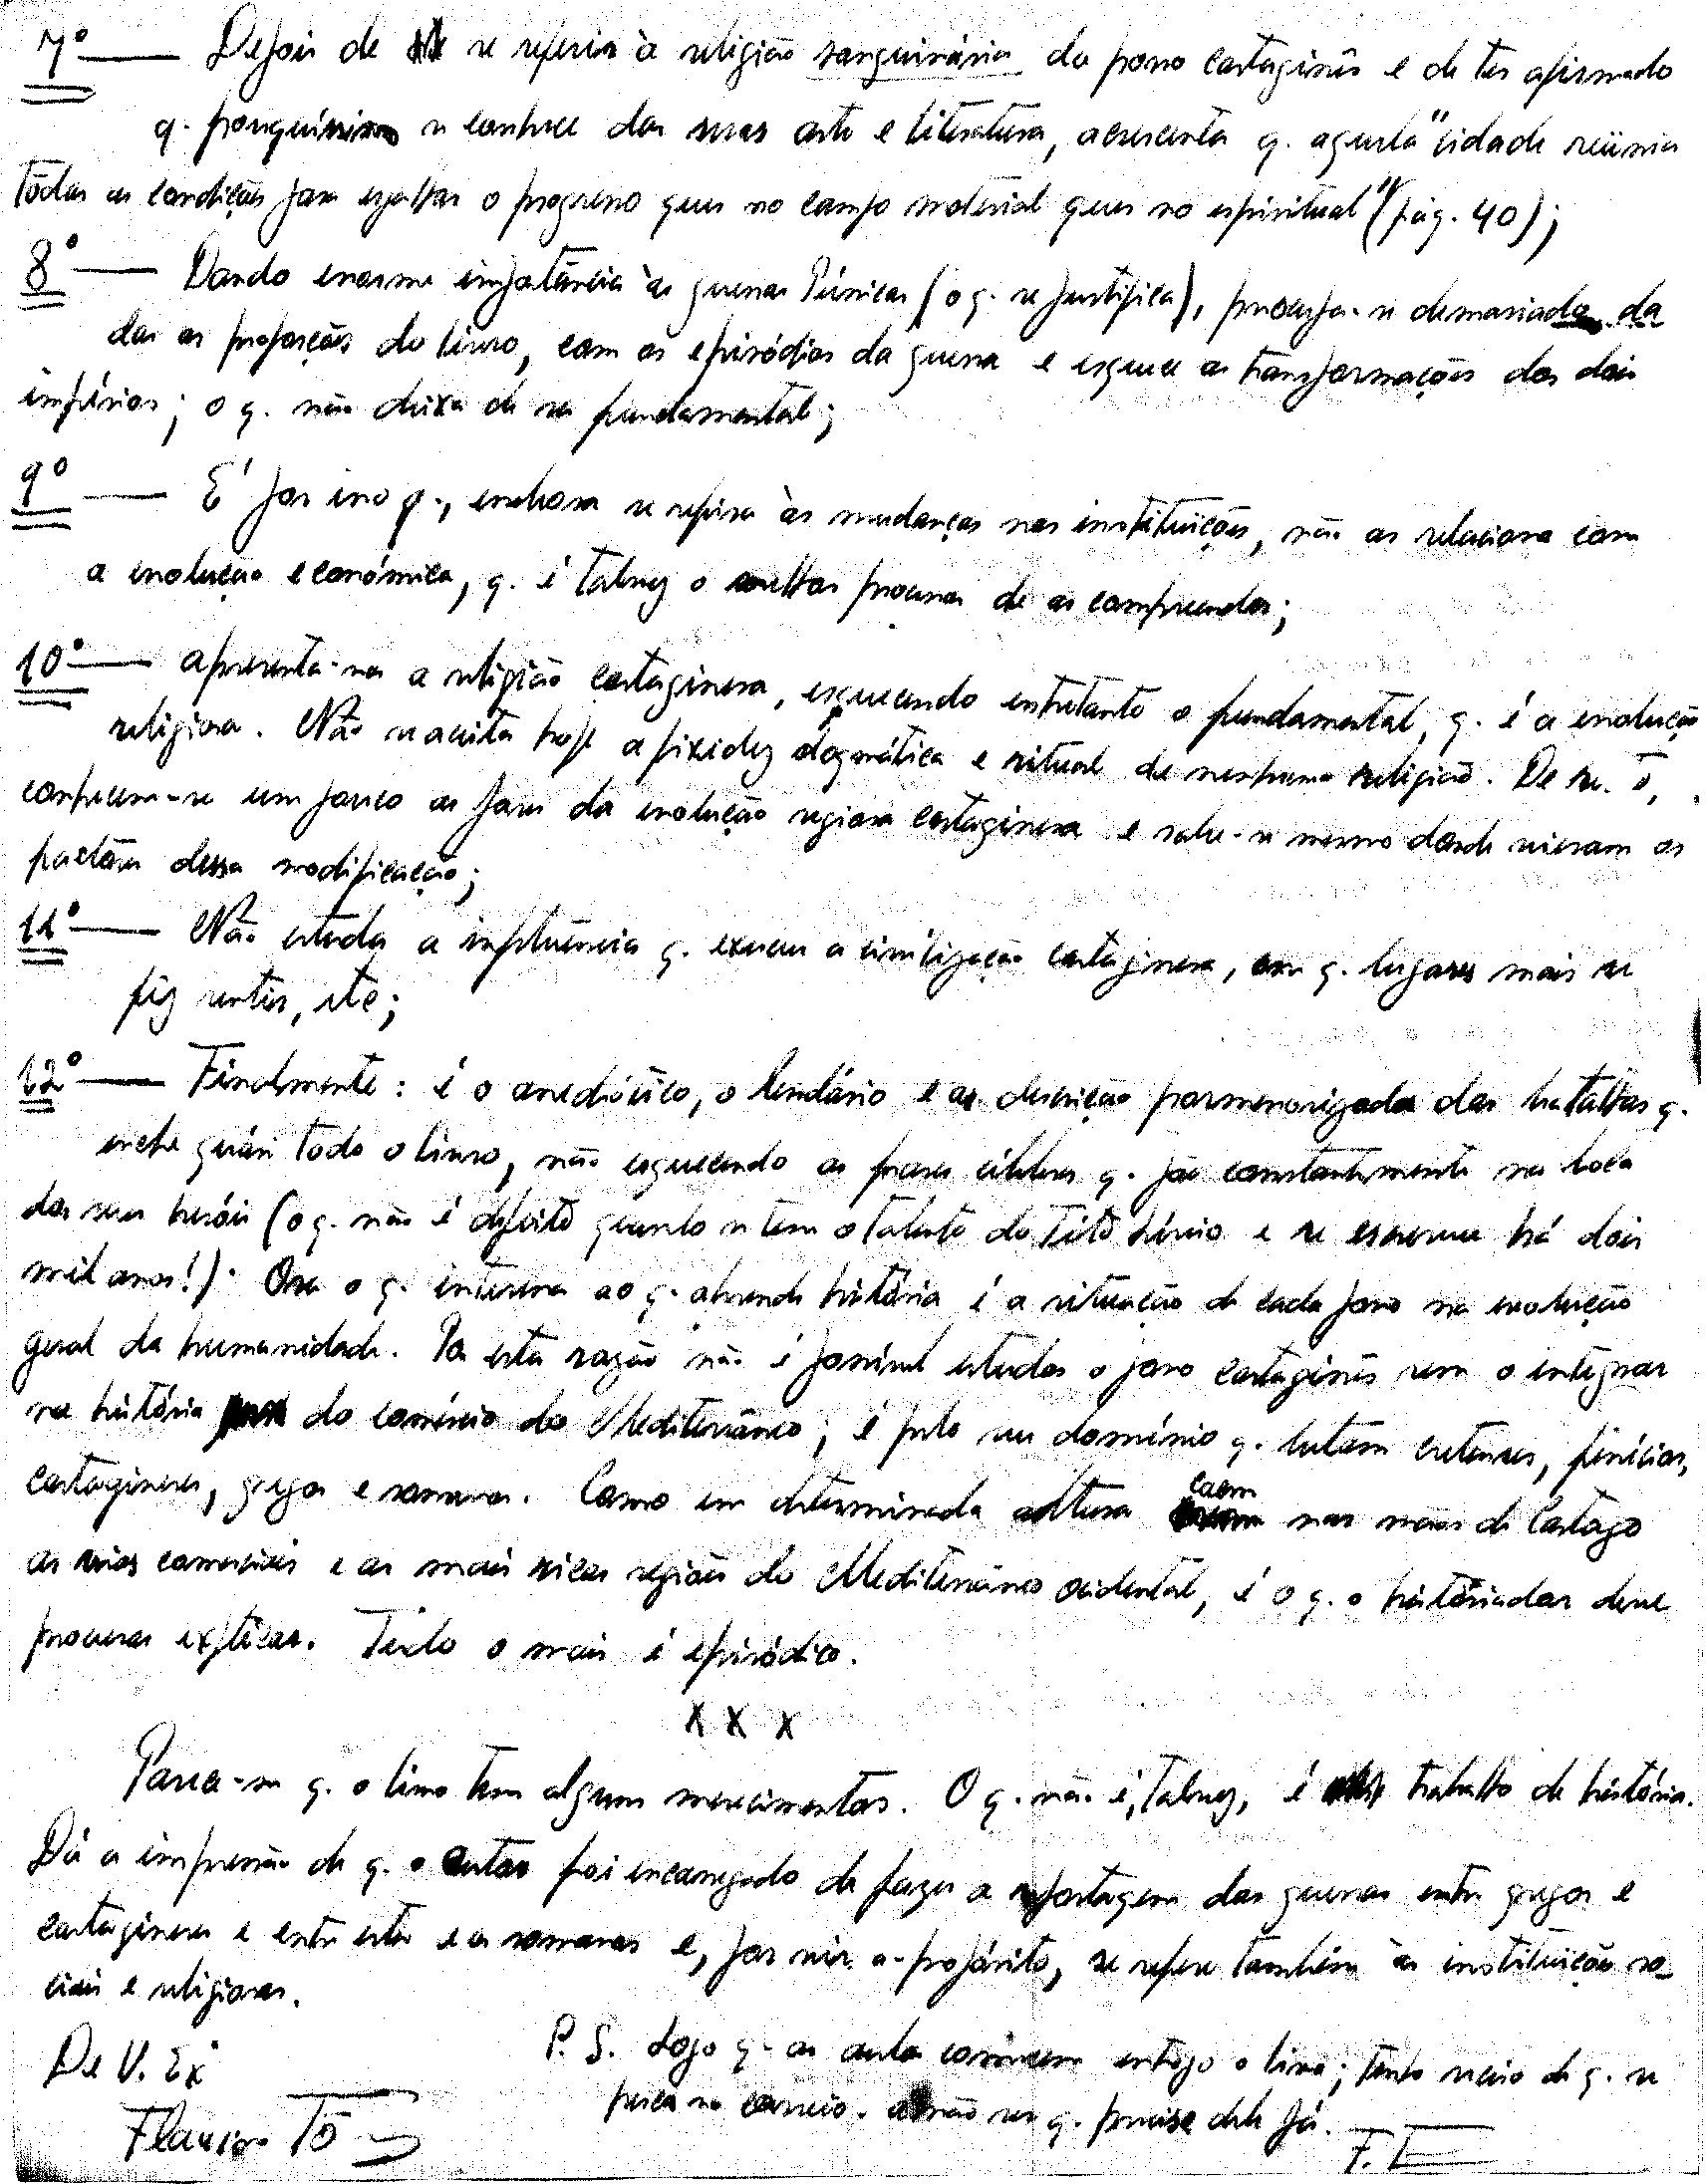 7º — Depois de se referir à religião sanguinária do povo cartaginês e de ter afirmado
q. pouquíssimo se conhece das suas arte e literatura, acrescenta q. aquela "cidade reünia
tôdas as condições para espalhar o progresso quer no campo material quer no espiritual" (pág. 40);
8º — Dando enorme importância às guerras Púnicas (o q. se justifica), preocupa-se demasiado, da
das as proporções do livro, com os episódios da guerra e esquece as transformações dos dois
impérios; o q. não deixa de ser fundamental;
9º — É por isso q., embora se refira às mudanças nas instituïções, não as relaciona com
a evolução económica, q. é talvez o melhor processo de as compreender;
10º — apresenta-nos a religião cartaginesa, esquecendo entretanto o fundamental, q. é a evolução
religiosa. Não se aceita hoje a fixidez dogmática e ritual de nenhuma religião. De resto,
conhecem-se um pouco as fases da evolução regiosa cartaginesa e sabe-se mesmo donde vieram os
factores dessa modificação;
11º — Não estuda a influência q. exerceu a civilização cartaginesa, em q. lugares mais se
fêz sentir, etc;
12º — Finalmente: é o anedótico, o lendário e a descrição pormenorizada das batalhas q.
enche quási todo o livro, não esquecendo as frases célebres q. põe constantemente na boca
dos seus heróis (o q. não é defeito quando se tem o talento do Tito Lívio e se escreveu há dois
mil anos!). Ora o q. interessa ao q. aprende história é a situação de cada povo na evolução
geral da humanidade. Por esta razão não é possível estudar o povo cartaginês sem o integrar
na história do comércio do Mediterrâneo; é pelo seu domínio q. lutam cretenses, fenícios,
cartagineses, gregos e romanos. Como em determinada altura caem nas mãos de Cartago
as vias comerciais e as mais ricas regiões do Mediterrâneo ocidental, é o q. o historiador deve
procurar explicar. Tudo o mais é episódico.
X X X
Parece-me q. o livro tem alguns merecimentos. O q. não é, talvez, é trabalho de história.
Dá a impressão de q. o autor foi encarregado de fazer a reportagem das guerras entre gregos e
cartagineses e entre estes e os romanos e, por vir a-propósito, se refere também às instituïções so-
ciais e religiosas.
De V. Exª
P. S. Logo q. as aulas comecem entrego o livro; tenho receio de q. se
perca no correio. a não ser q. precise dele já.
Flausino Tô
F. T.